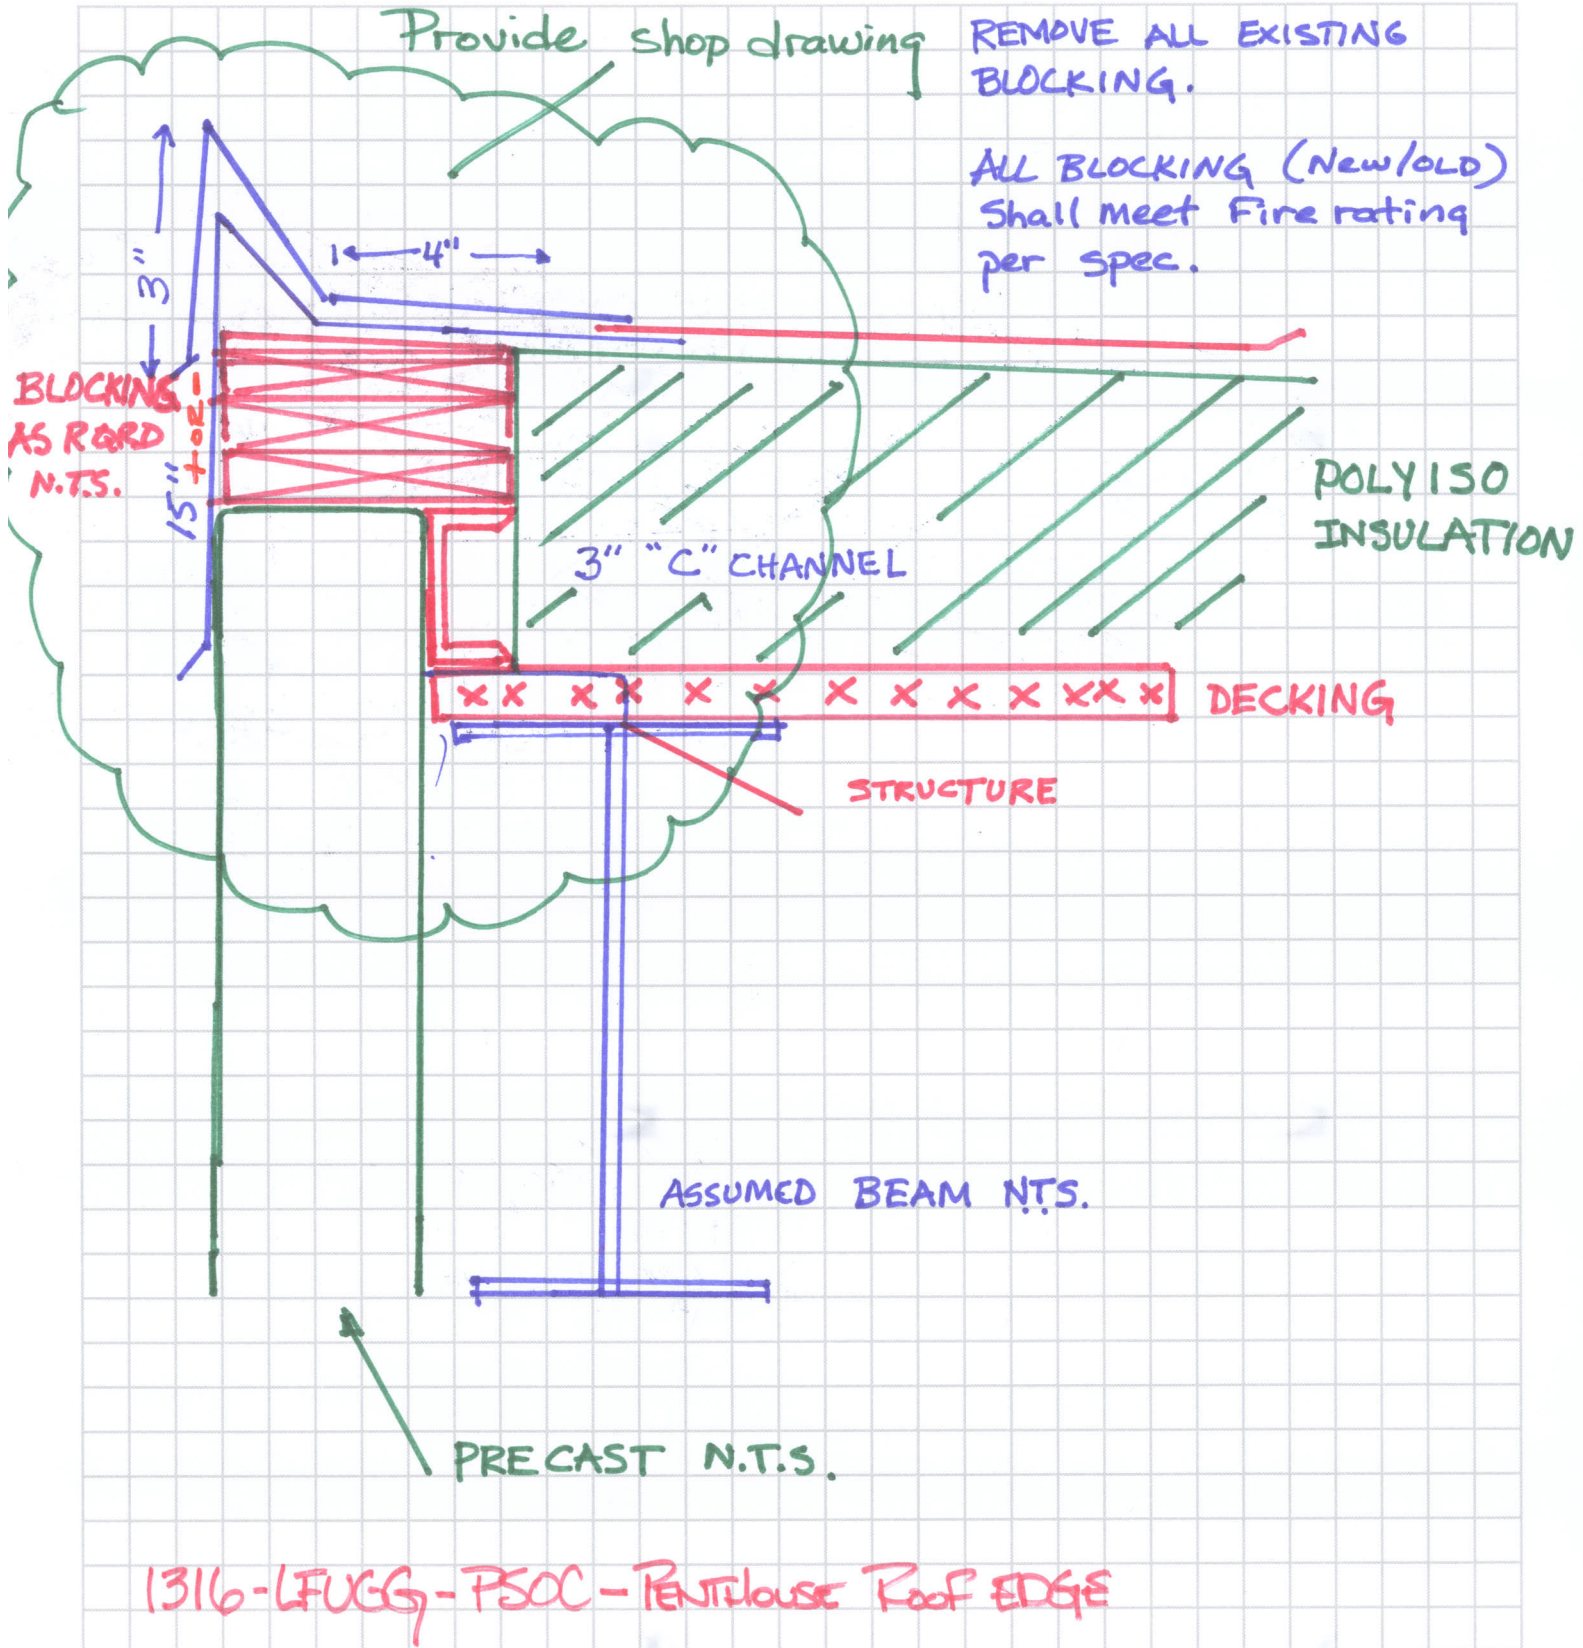 Provide shop drawing
REMOVE ALL EXISTING
BLOCKING.
ALL BLOCKING (New/OLD)
Shall meet Fire rating
per spec.
3"
4"
BLOCKING
AS RQRD
N.T.S.
15" + OR -
POLYISO
INSULATION
3" "C" CHANNEL
X X X X X X X X X X X X X
DECKING
STRUCTURE
ASSUMED BEAM N.T.S.
PRECAST N.T.S.
1316-LFUCG-PSOC-PENTHOUSE ROOF EDGE